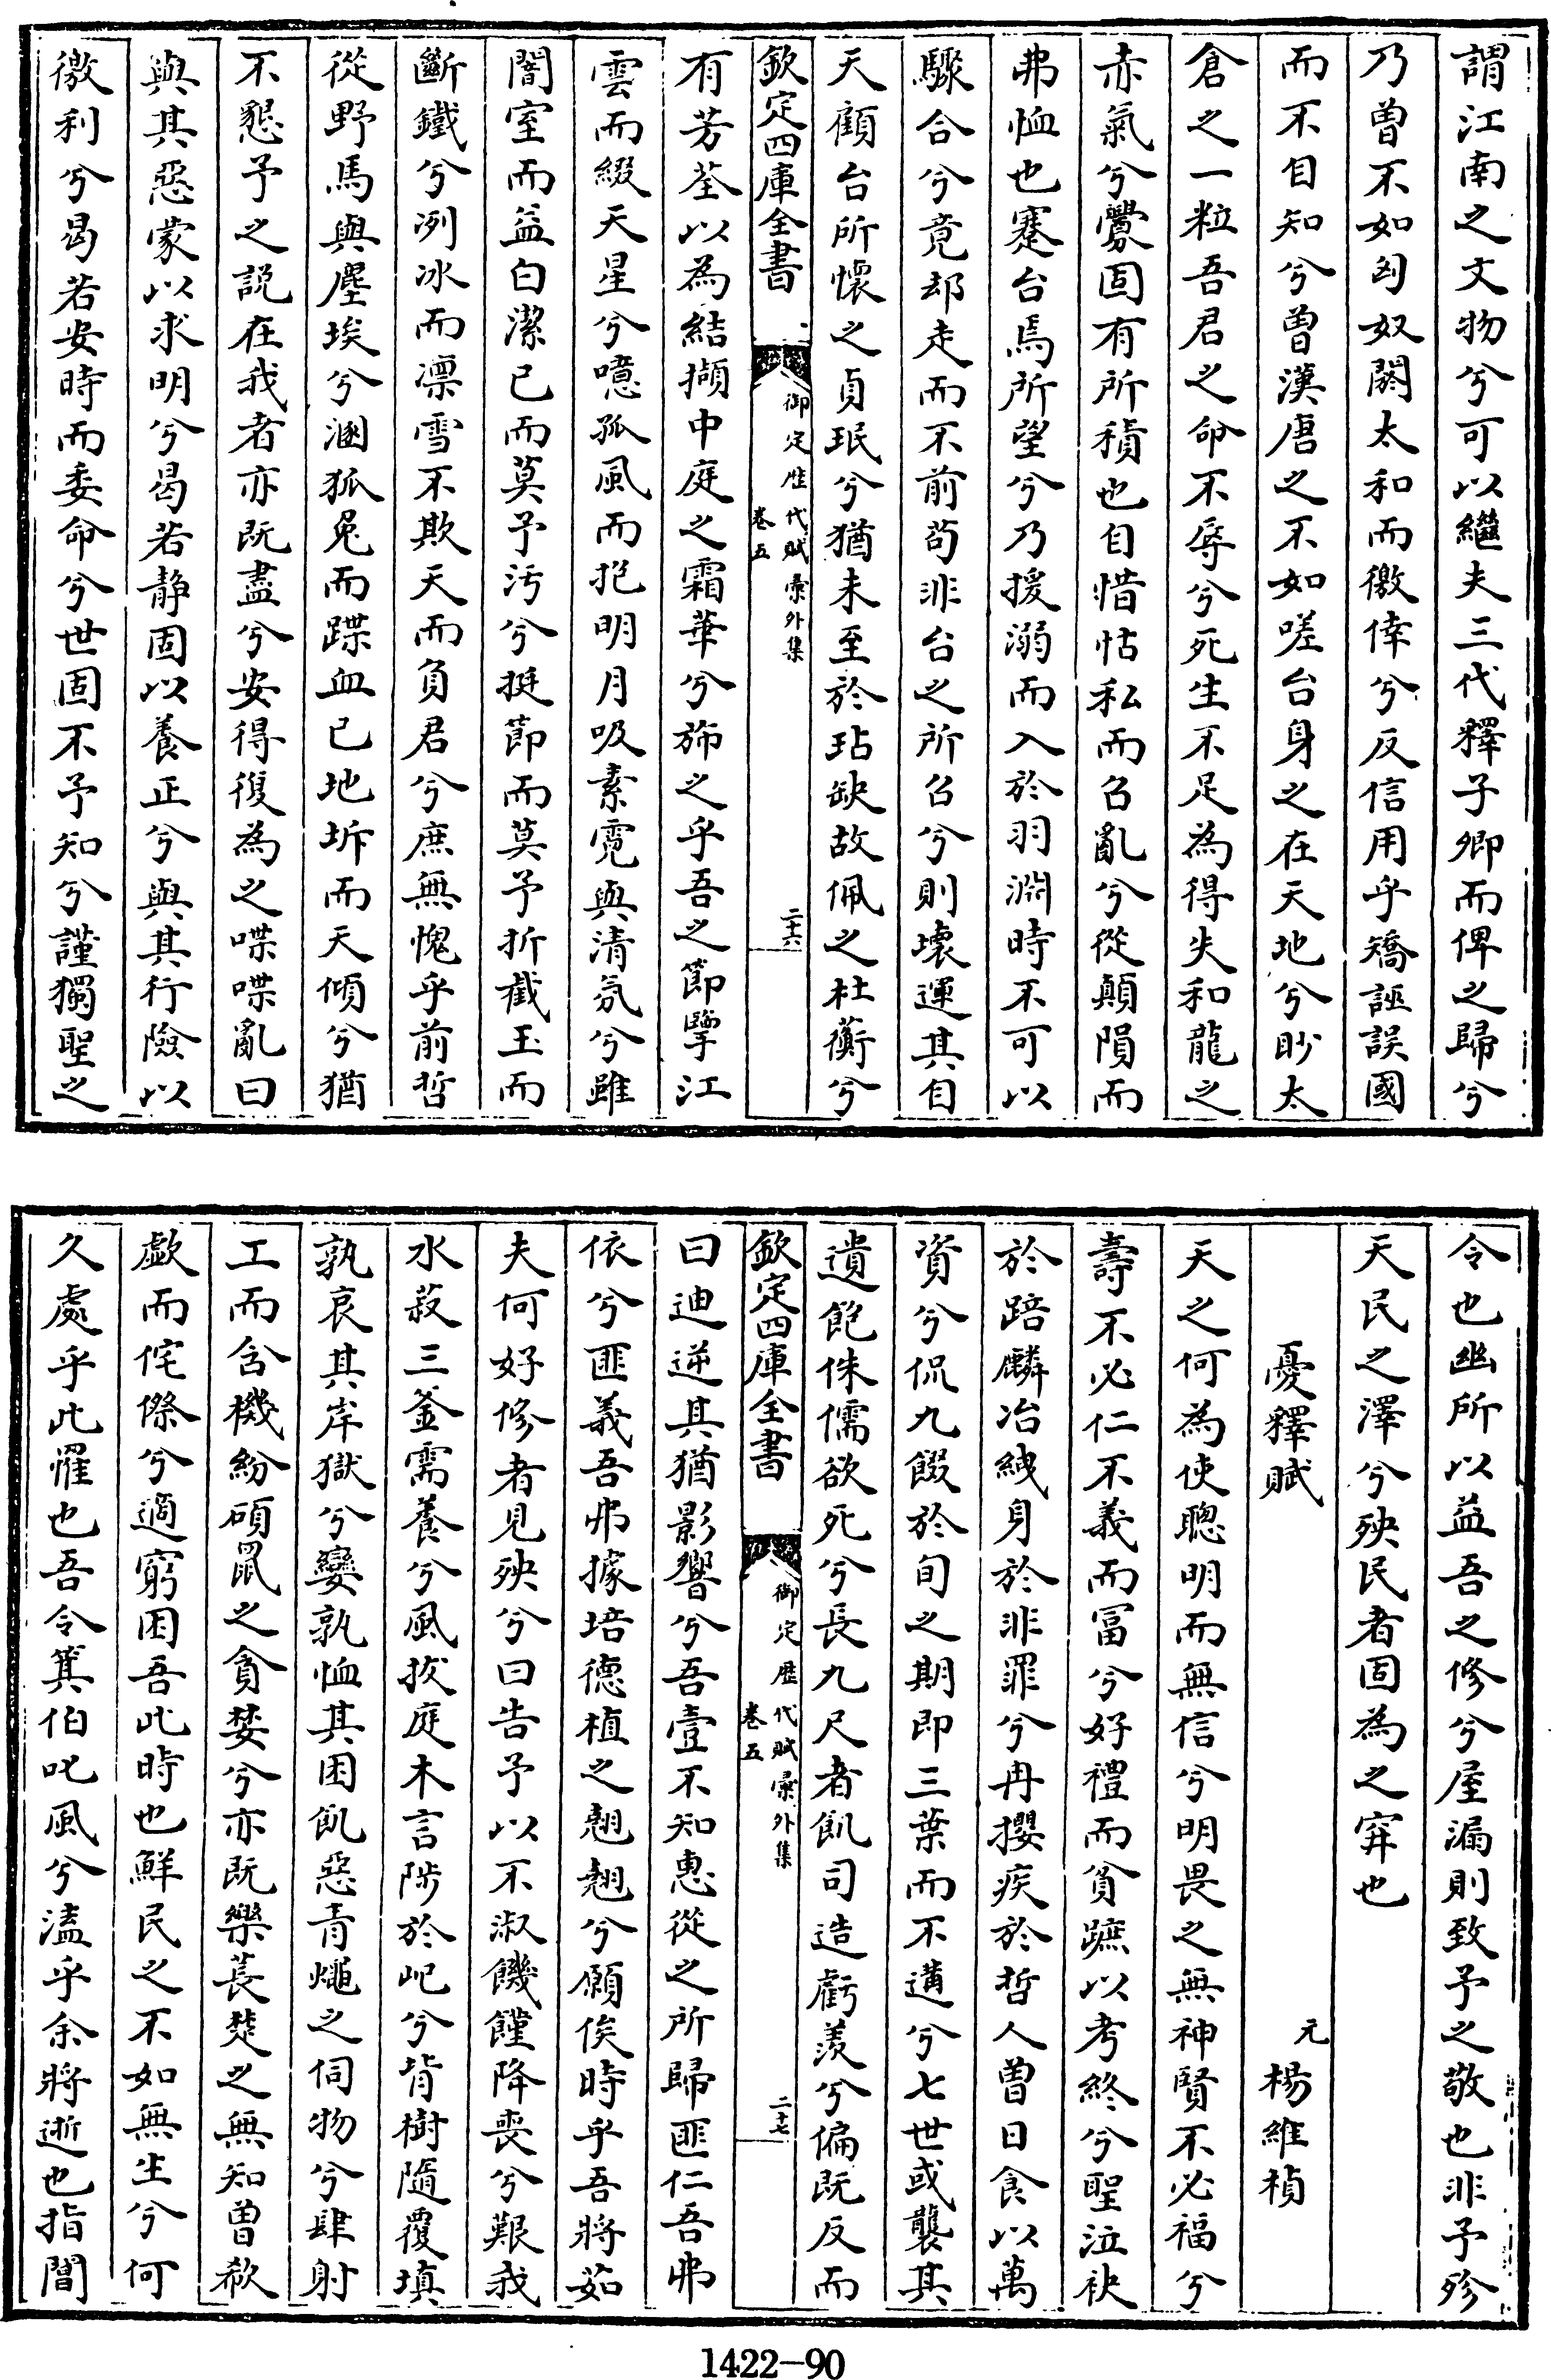 謂江南之文物兮可以繼夫三代釋子卿而俾之歸兮
乃曾不如匈奴閼太和而徼倖兮反信用乎矯誣誤國
而不自知兮曾漢唐之不如嗟台身之在天地兮眇太
倉之一粒吾君之命不辱兮死生不足為得失和龍之
赤氣兮釁固有所積也自惜怙私而召亂兮從顛隕而
弗恤也蹇台焉所望兮乃援溺而入於羽淵時不可以
驟合兮竟却走而不前苟非台之所召兮則壞運其自
天顧台所懷之貞珉兮猶未至於玷缺故佩之杜蘅兮
欽定四庫全書
御定歷代賦彙外集
卷五
二十六
有芳荃以為結擷中庭之霜華兮旆之乎吾之節擥江
雲而綴天星兮噫孤風而抱明月吸素霓與清氛兮雖
闇室而益白潔已而莫予汚兮挺節而莫予折截玉而
斷鐵兮冽冰而凛雪不欺天而負君兮庶無愧乎前哲
從野馬與塵埃兮溷狐兔而蹀血已地坼而天傾兮猶
不懇予之說在我者亦既盡兮安得復為之喋喋亂曰
與其惡蒙以求明兮曷若静固以養正兮與其行險以
徼利兮曷若安時而委命兮世固不予知兮謹獨聖之
令也幽所以益吾之修兮屋漏則致予之敬也非予殄
天民之澤兮殃民者固為之穽也
憂釋賦
元楊維楨
天之何為使聰明而無信兮明畏之無神賢不必福兮
壽不必仁不義而冨兮好禮而貧蹠以考終兮聖泣袂
於踣麟冶絏身於非罪兮冉攖疾於哲人曾日食以萬
資兮侃九餟於旬之期即三葉而不遘兮七世或襲其
遺飽侏儒欲死兮長九尺者飢司造虧羡兮偏既反而
欽定四庫全書
御定歷代賦彙外集
卷五
二十七
曰迪逆其猶影響兮吾壹不知惠從之所歸匪仁吾弗
依兮匪義吾弗據培德植之翹翹兮願俟時乎吾將茹
夫何好修者見殃兮曰告予以不淑饑饉降喪兮艱我
水菽三釜需養兮風拔庭木言陟於屺兮背樹隨覆塡
孰哀其岸獄兮孌孰恤其困飢惡青蠅之伺物兮肆射
工而含機紛碩鼠之貪婪兮亦既樂萇楚之無知曾欷
歔而侘傺兮適窮困吾此時也鮮民之不如無生兮何
久處乎此罹也吾令箕伯叱風兮溘乎余將逝也指閶
1422-90